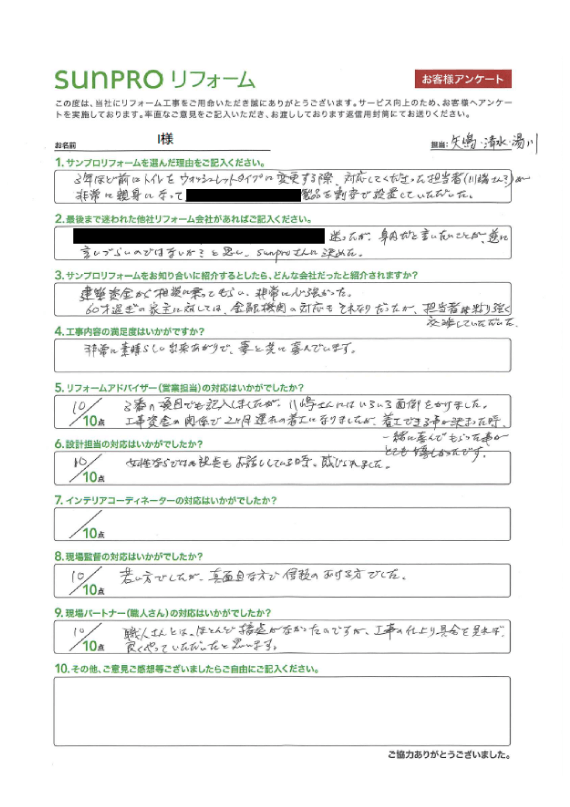 sunPRO リフォーム
お客様アンケート
この度は、当社にリフォーム工事をご用命いただき誠にありがとうございます。サービス向上のため、お客様へアンケー
トを実施しております。率直なご意見をご記入いただき、お渡ししております返信用封筒にてお送りください。
お名前 I様 担当: 矢嶋・清水・湯川
1.サンプロリフォームを選んだ理由をご記入ください。
3年ほど前にトイレをウォッシュレットタイプに変更する際、対応してくださった担当者(川嶋さん?)が
非常に親身になって 製品を割安で設置していただいた。
2.最後まで迷われた他社リフォーム会社があればご記入ください。
迷ったが、身内だと言いたいことが、逆に
言しづらいのではないか?と思い、sunproさんに決めた。
3.サンプロリフォームをお知り合いに紹介するとしたら、どんな会社だったと紹介されますか?
建築資金から相談に乗ってもらい、非常に心強かった。
60才過ぎの家主に対しては、金融機関の対応もそれなりだったが、担当者は粘り強く
交渉していただいた。
4.工事内容の満足度はいかがですか?
非常に素晴らしい出来あがりで、妻と共に喜んでいます。
5.リフォームアドバイザー(営業担当)の対応はいかがでしたか?
10/10点 3番の項目でも記入しましたが、川嶋さんにはいろいろ面倒をかけました。
工事資金の関係で2ヶ月遅れの着工になりましたが、着工できる事が決まった時、
一緒に喜んでもらった事が
とても嬉しかったです。
6.設計担当の対応はいかがでしたか?
10/10点 女性ならではの視点もお話ししている時、感じられました。
7.インテリアコーディネーターの対応はいかがでしたか?
/10点
8.現場監督の対応はいかがでしたか?
10/10点 若い方でしたが、真面目な方で信頼のおける方でした。
9.現場パートナー(職人さん)の対応はいかがでしたか?
10/10点 職人さんとは、ほとんど接点がなかったのですが、工事の仕上り具合を見れば、
良くやっていただいたと思います。
10.その他、ご意見ご感想等ございましたらご自由にご記入ください。
ご協力ありがとうございました。